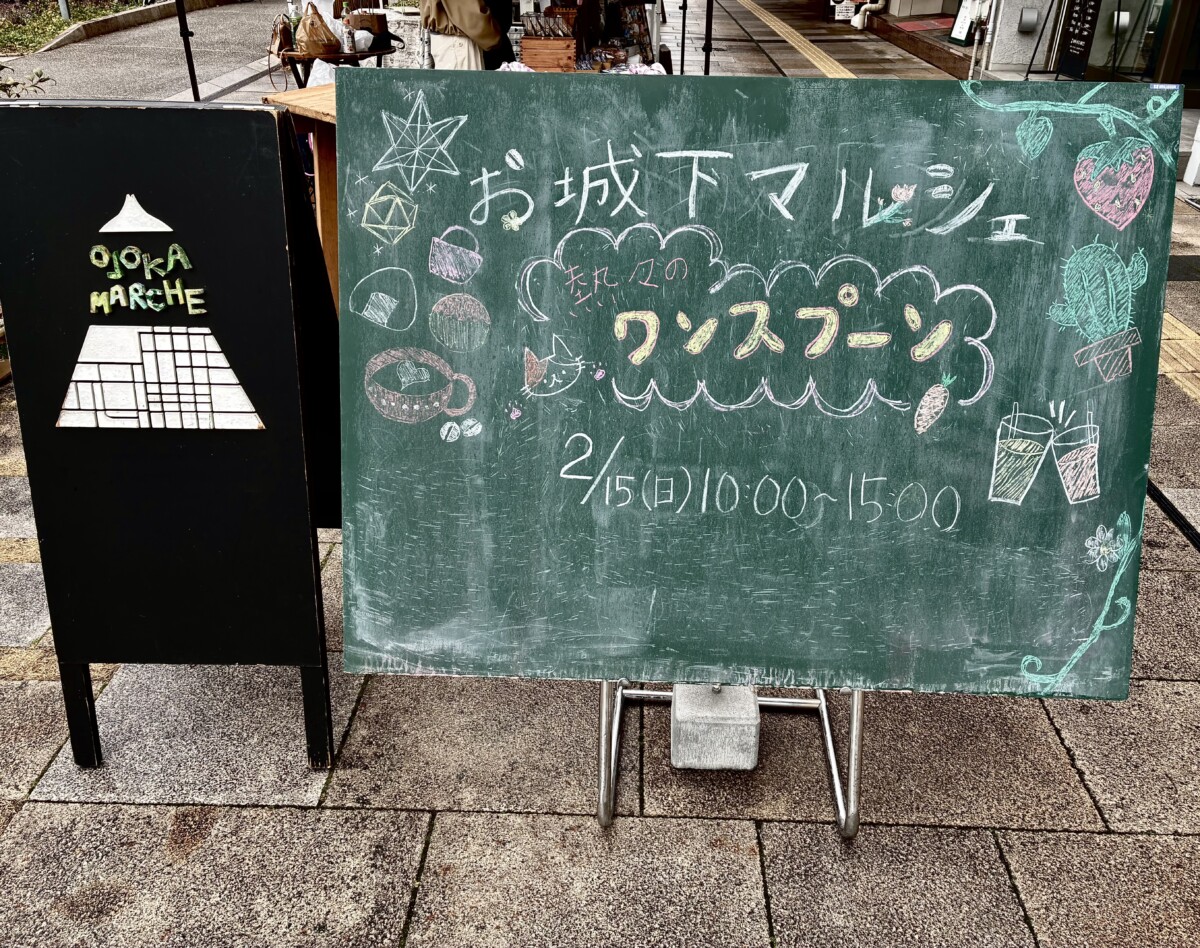 OJOKA
MARCHE
お城下マルシェ
熱々の
ワンスプーン
2/15(日)10:00~15:00